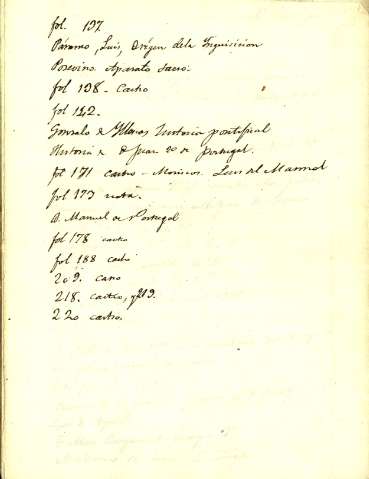 fol. 137
Páramo, Luis, Origen dela Inquisicion
Posevino. Aparato Sacro.
fol 138. Castro
fol 142.
Gonzalo de Yllescas historia pontifical
Historia de D Juan 2º de Portugal.
fol 171 castro - Moriscos. Luis del Marmol
fol 173 nota.
D. Manuel de Portugal
fol 178 castro
fol 188 castro
209. castro
218. castro, y 219.
220 castro.